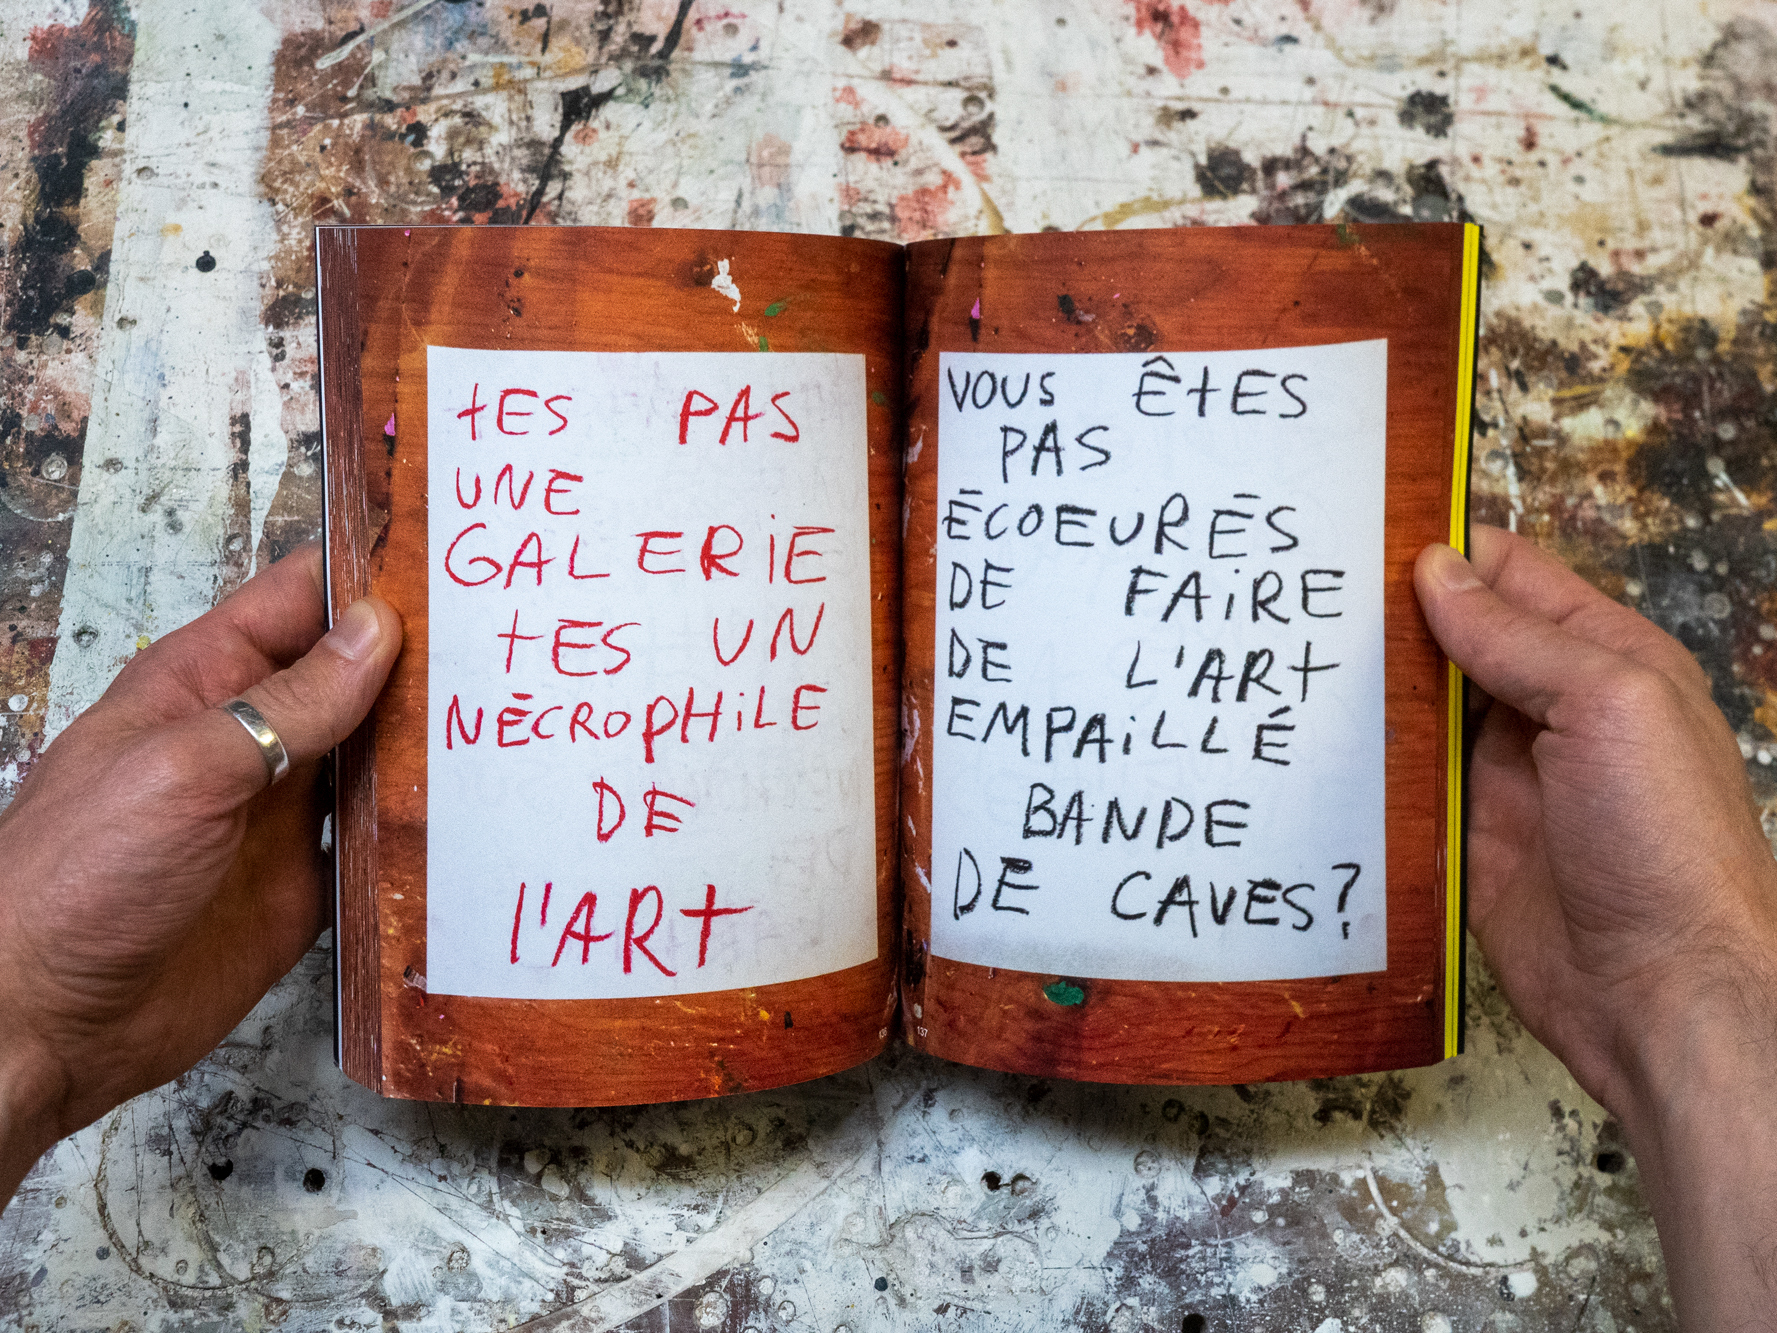 tES PAS
UNE
GALERiE
tES UN
NÉCROPHiLE
DE
l'ARt
136
VOUS ÊtES
PAS
ÉCOEURÉS
DE FAiRE
DE L'ARt
EMPAiLLÉ
BANDE
DE CAVES?
137